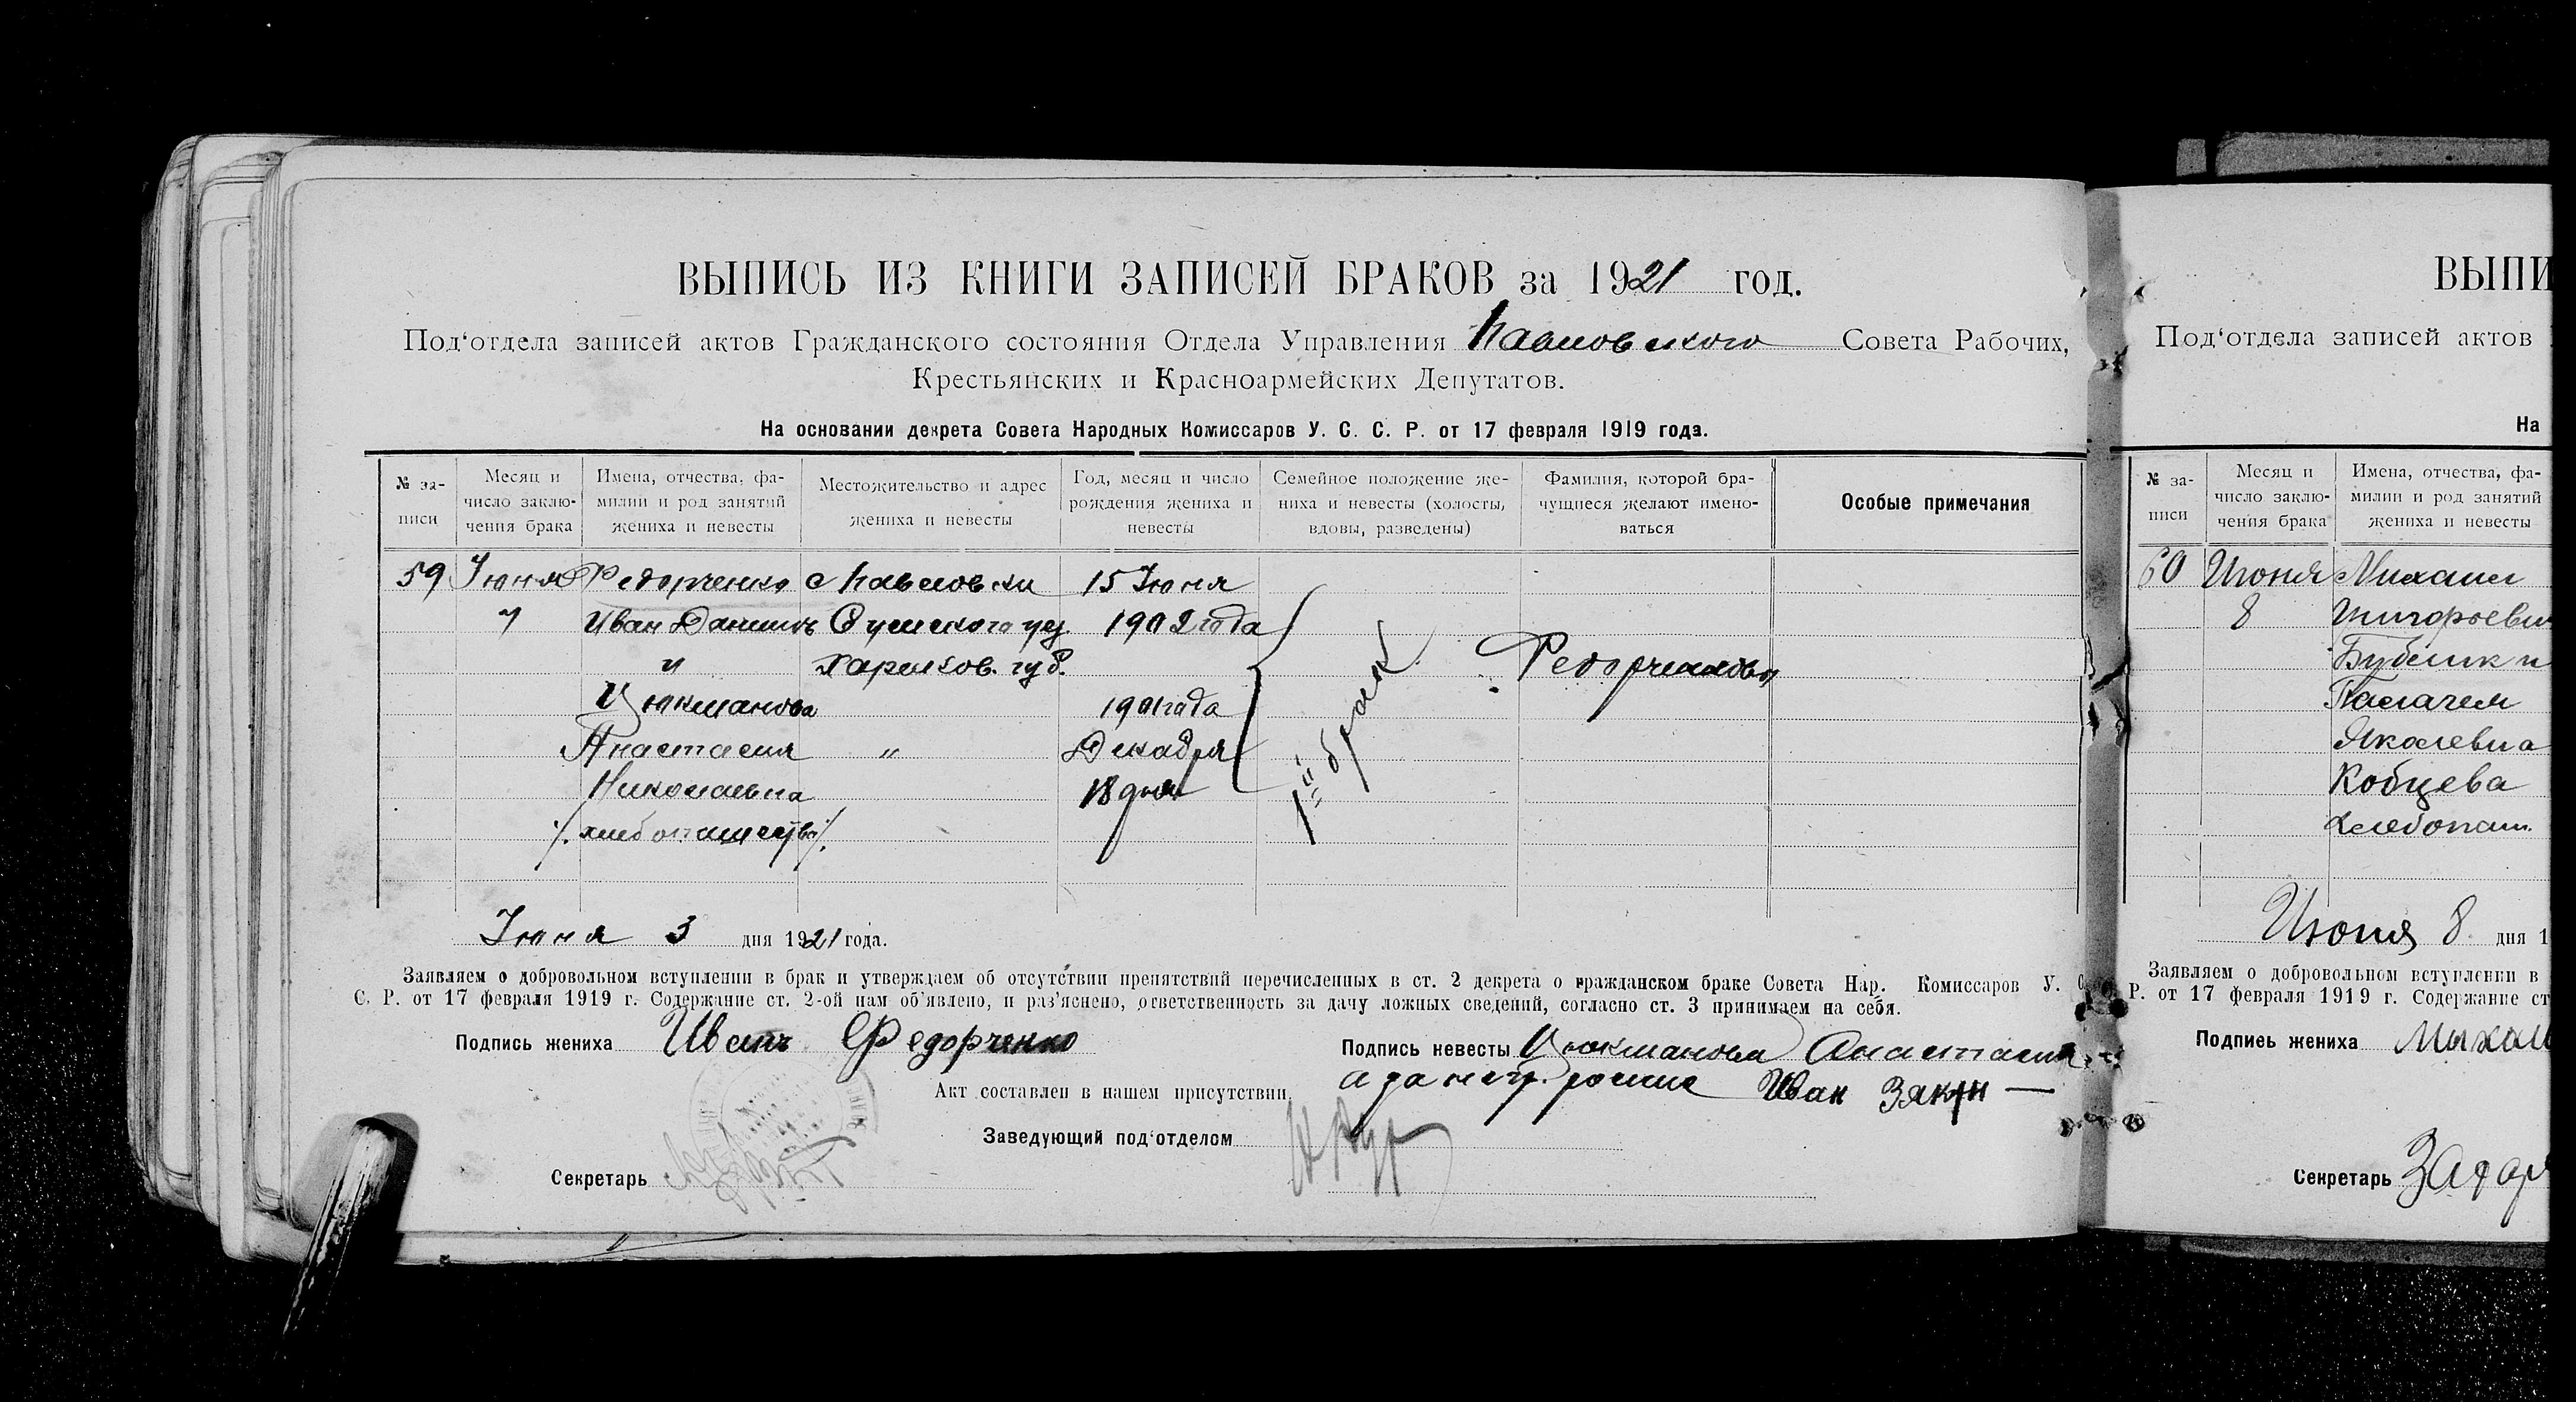 ВЫПИСЬ ИЗ КНИГИ ЗАПИСЕЙ БРАКОВ за 1921 год.
Под‘отдела записей актов Гражданского состояния Отдела Управления Павловского Совета Рабочих,
Крестьянских и Красноармейских Депутатов.
На основании декрета Совета Народных Комиссаров У. С. С. Р. от 17 февраля 1919 года.
№ за-
писи
Месяц и
число заклю-
чения брака
Имена, отчества, фа-
милии и род занятий
жениха и невесты
Местожительство и адрес
жениха и невесты
Год, месяц и число
рождения жениха и
невесты
Семейное положение же-
ниха и невесты (холосты,
вдовы, разведены)
Фамилия, которой бра-
чущиеся желают имено-
ваться
Особые примечания
59 Июня Федорченко с Павловки 15 Июня
Иван Сумского уез 1902 года
и Харьков. губ. Федорченковы
Цюкманова 1901 года
Анастасия " Декабря
Николаевна 18 дня
хлебопашество
1ый брак
Июня 3 дня 1921 года.
Заявляем о добровольном вступлении в брак и утверждаем об отсутствии препятствий перечисленных в ст. 2 декрета о гражданском браке Совета Нар. Комиссаров У. С.
С. Р. от 17 февраля 1919 г. Содержание ст. 2-ой нам об‘явлено, и раз‘яснено, ответственность за дачу ложных сведений, согласно ст. 3 принимаем на себя.
Подпись жениха Иванъ Федорченко
Подпись невесты Цюкманова Анастасия
а за негр. росписе Иван
Акт составлен в нашем присутствии.
Заведующий под‘отделом
Секретарь
ВЫПИ
Под‘отдела записей актов
На
№ за-
писи
Месяц и
число заклю-
чения брака
Имена, отчества, фа-
милии и род занятий
жениха и невесты
60 Июня Михаил
8
Бублик и
Яковлевна
Кобцева
Хлебопаш.
Июня 8 дня 1
Заявляем о добровольном вступлении в
Р. от 17 февраля 1919 г. Содержание ст
Подпись жениха Мыхаи
Секретарь Захар